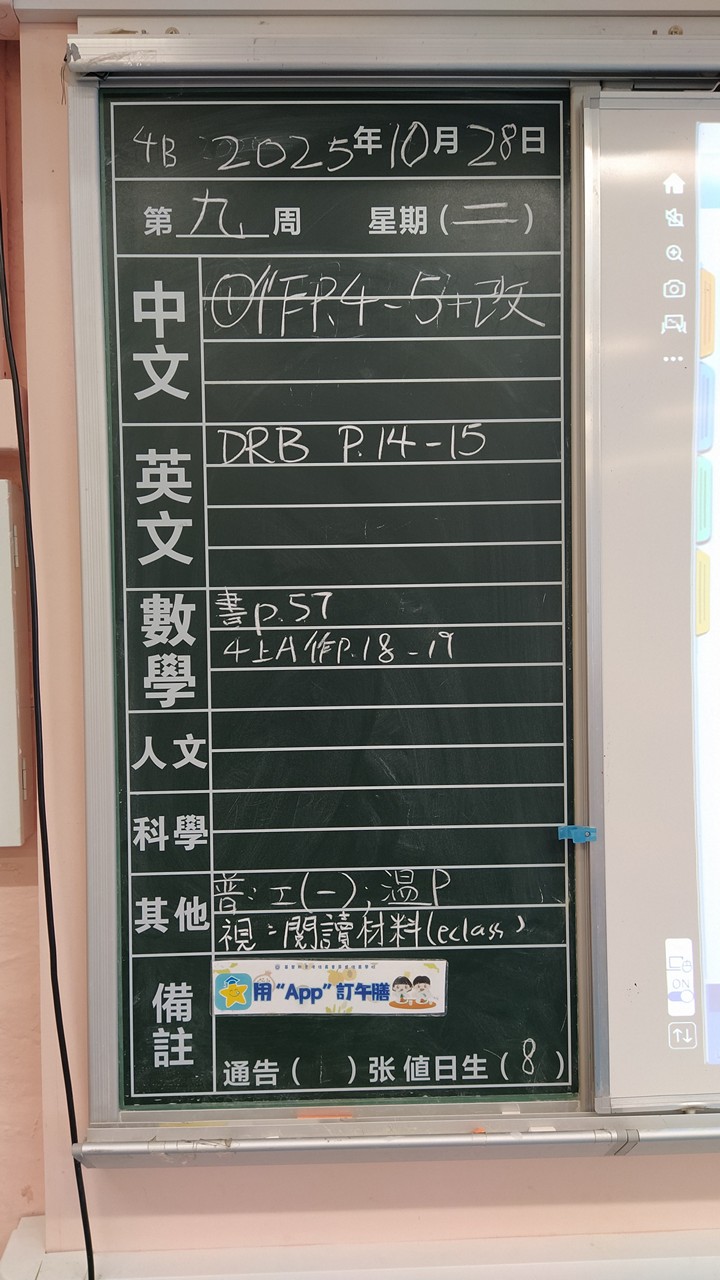 4B 2025年10月28日
第九周 星期(二)
中文
①作P.4-5+改
英文
DRB P.14-15
數學
書p.57
4上A作P.18-19
人文
科學
其他
普:工(一);溫P
視:閱讀材料(eclass)
備註
用“App”訂午膳
通告( )张 值日生(8)
ON